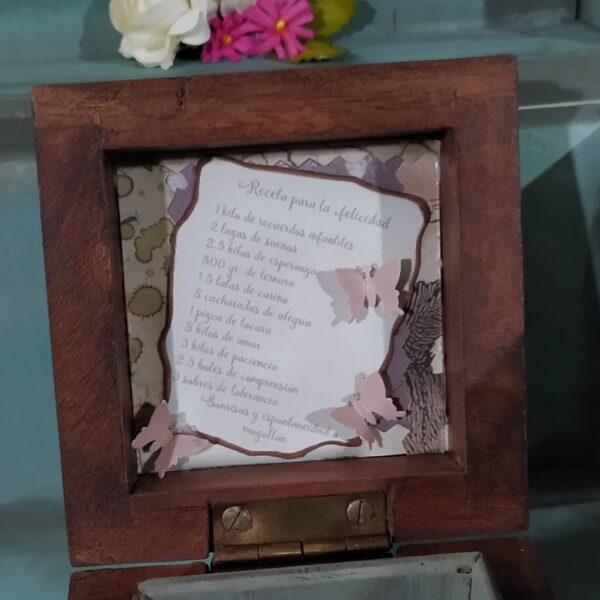 Receta para la felicidad
1 kilo de recuerdos infantiles
2 tazas de sueños
2.5 kilos de esperanza
500 gr. de ternura
1.5 latas de cariño
8 cucharadas de alegria
1 pizca de locura
8 kilos de amor
3 kilos de paciencia
2.5 botes de comprensión
3 sobres de tolerancia
Sonrisas y espontaneidad a
mogollon